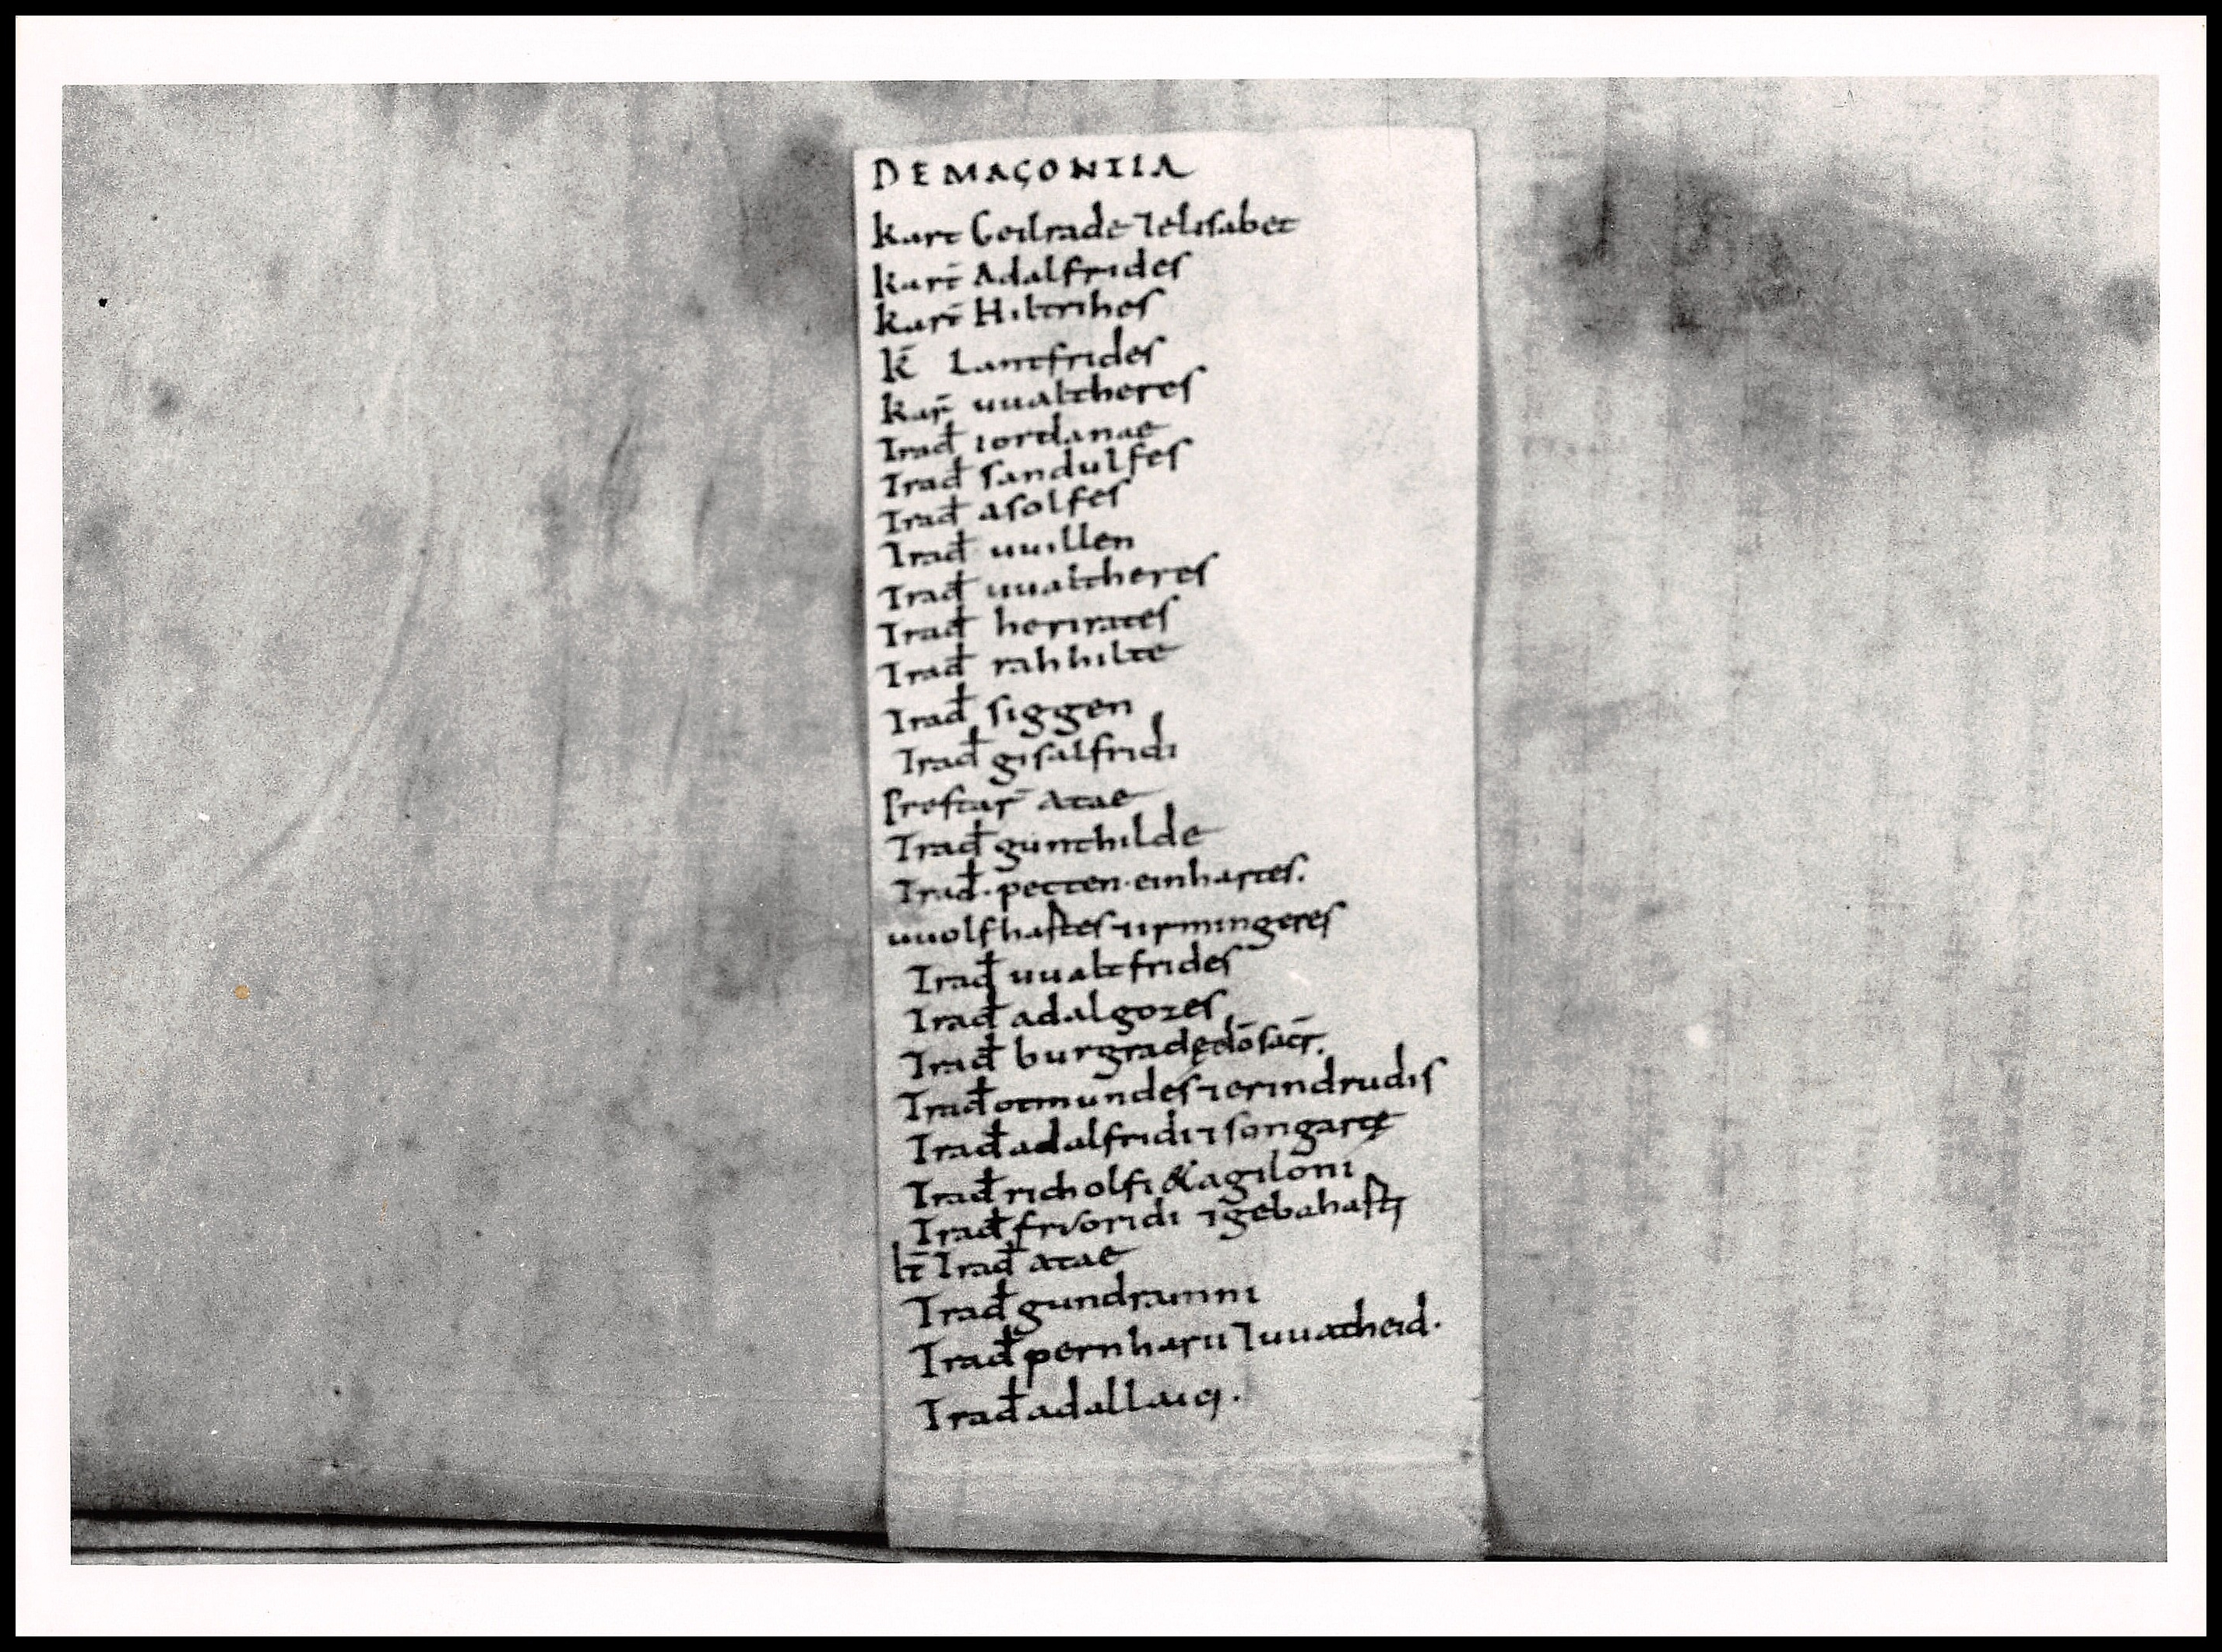 DEMAÇONIIA
kart Geilrade ⁊elisabet
kart̄ Adalfrides
kart̄ Hiltrihes
k̄ Lantfrides
kar̄ uualtheres
Trad̄ iordanae
Trad̄ sandulfes
Trad̄ asolfes
Trad̄ uuillen
Trad̄ uualtheres
Trad̄ herirates
Trad̄ rahhilte
Trad̄ siggen
Trad̄ gisalfridi
Prestar̄ atae
Trad̄ gunthilde
Trad̄· petten·einhartes.
uuolfhaftes ⁊irmingeres
Trad̄ uualtfrides
Trad̄ adalgozes
Trad̄ burgradę dō sacr̄.
Trad̄ otmundes ⁊erindrudis
Trad̄ adalfridi ⁊songartę
Trad̄ richolfi & agiloni
Trad̄ friuoridi ⁊gebahafti
It̄ Trad̄ atae
Trad̄ gundramni
Trad̄ pernharii ⁊uuatheid·
Trad̄ adallaici·